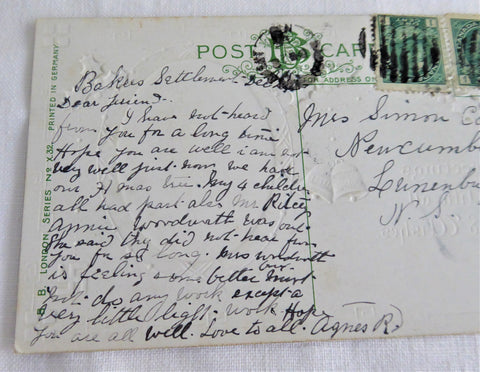 POST CARD
FOR ADDRESS ON
B. B. LONDON SERIES No X32. PRINTED IN GERMANY.
Bakers Settlement Dec
Dear friend.
I have not heard
from you for a long time
Hope you are well i am
very well just now we had
our Xmas tree. my 4 children
all had part also Mr
Annie Woodworth was out
She said they did not hear from
you for so long. Mrs Woodworth
is feeling some better but must
not do any work except a
very little light work Hope
you are all well. Love to all. Agnes R.
Mrs Simon
Newcumb
Lunenbu
N. S.